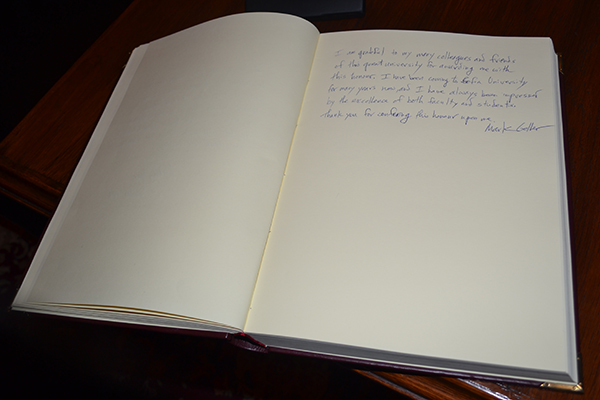 I am grateful to my many colleagues and friends
of this great university for awarding me with
this honour. I have been coming to Sofia University
for many years now and I have always been impressed
by the excellence of both faculty and students.
Thank you for conferring this honor upon me.
Mark Geller